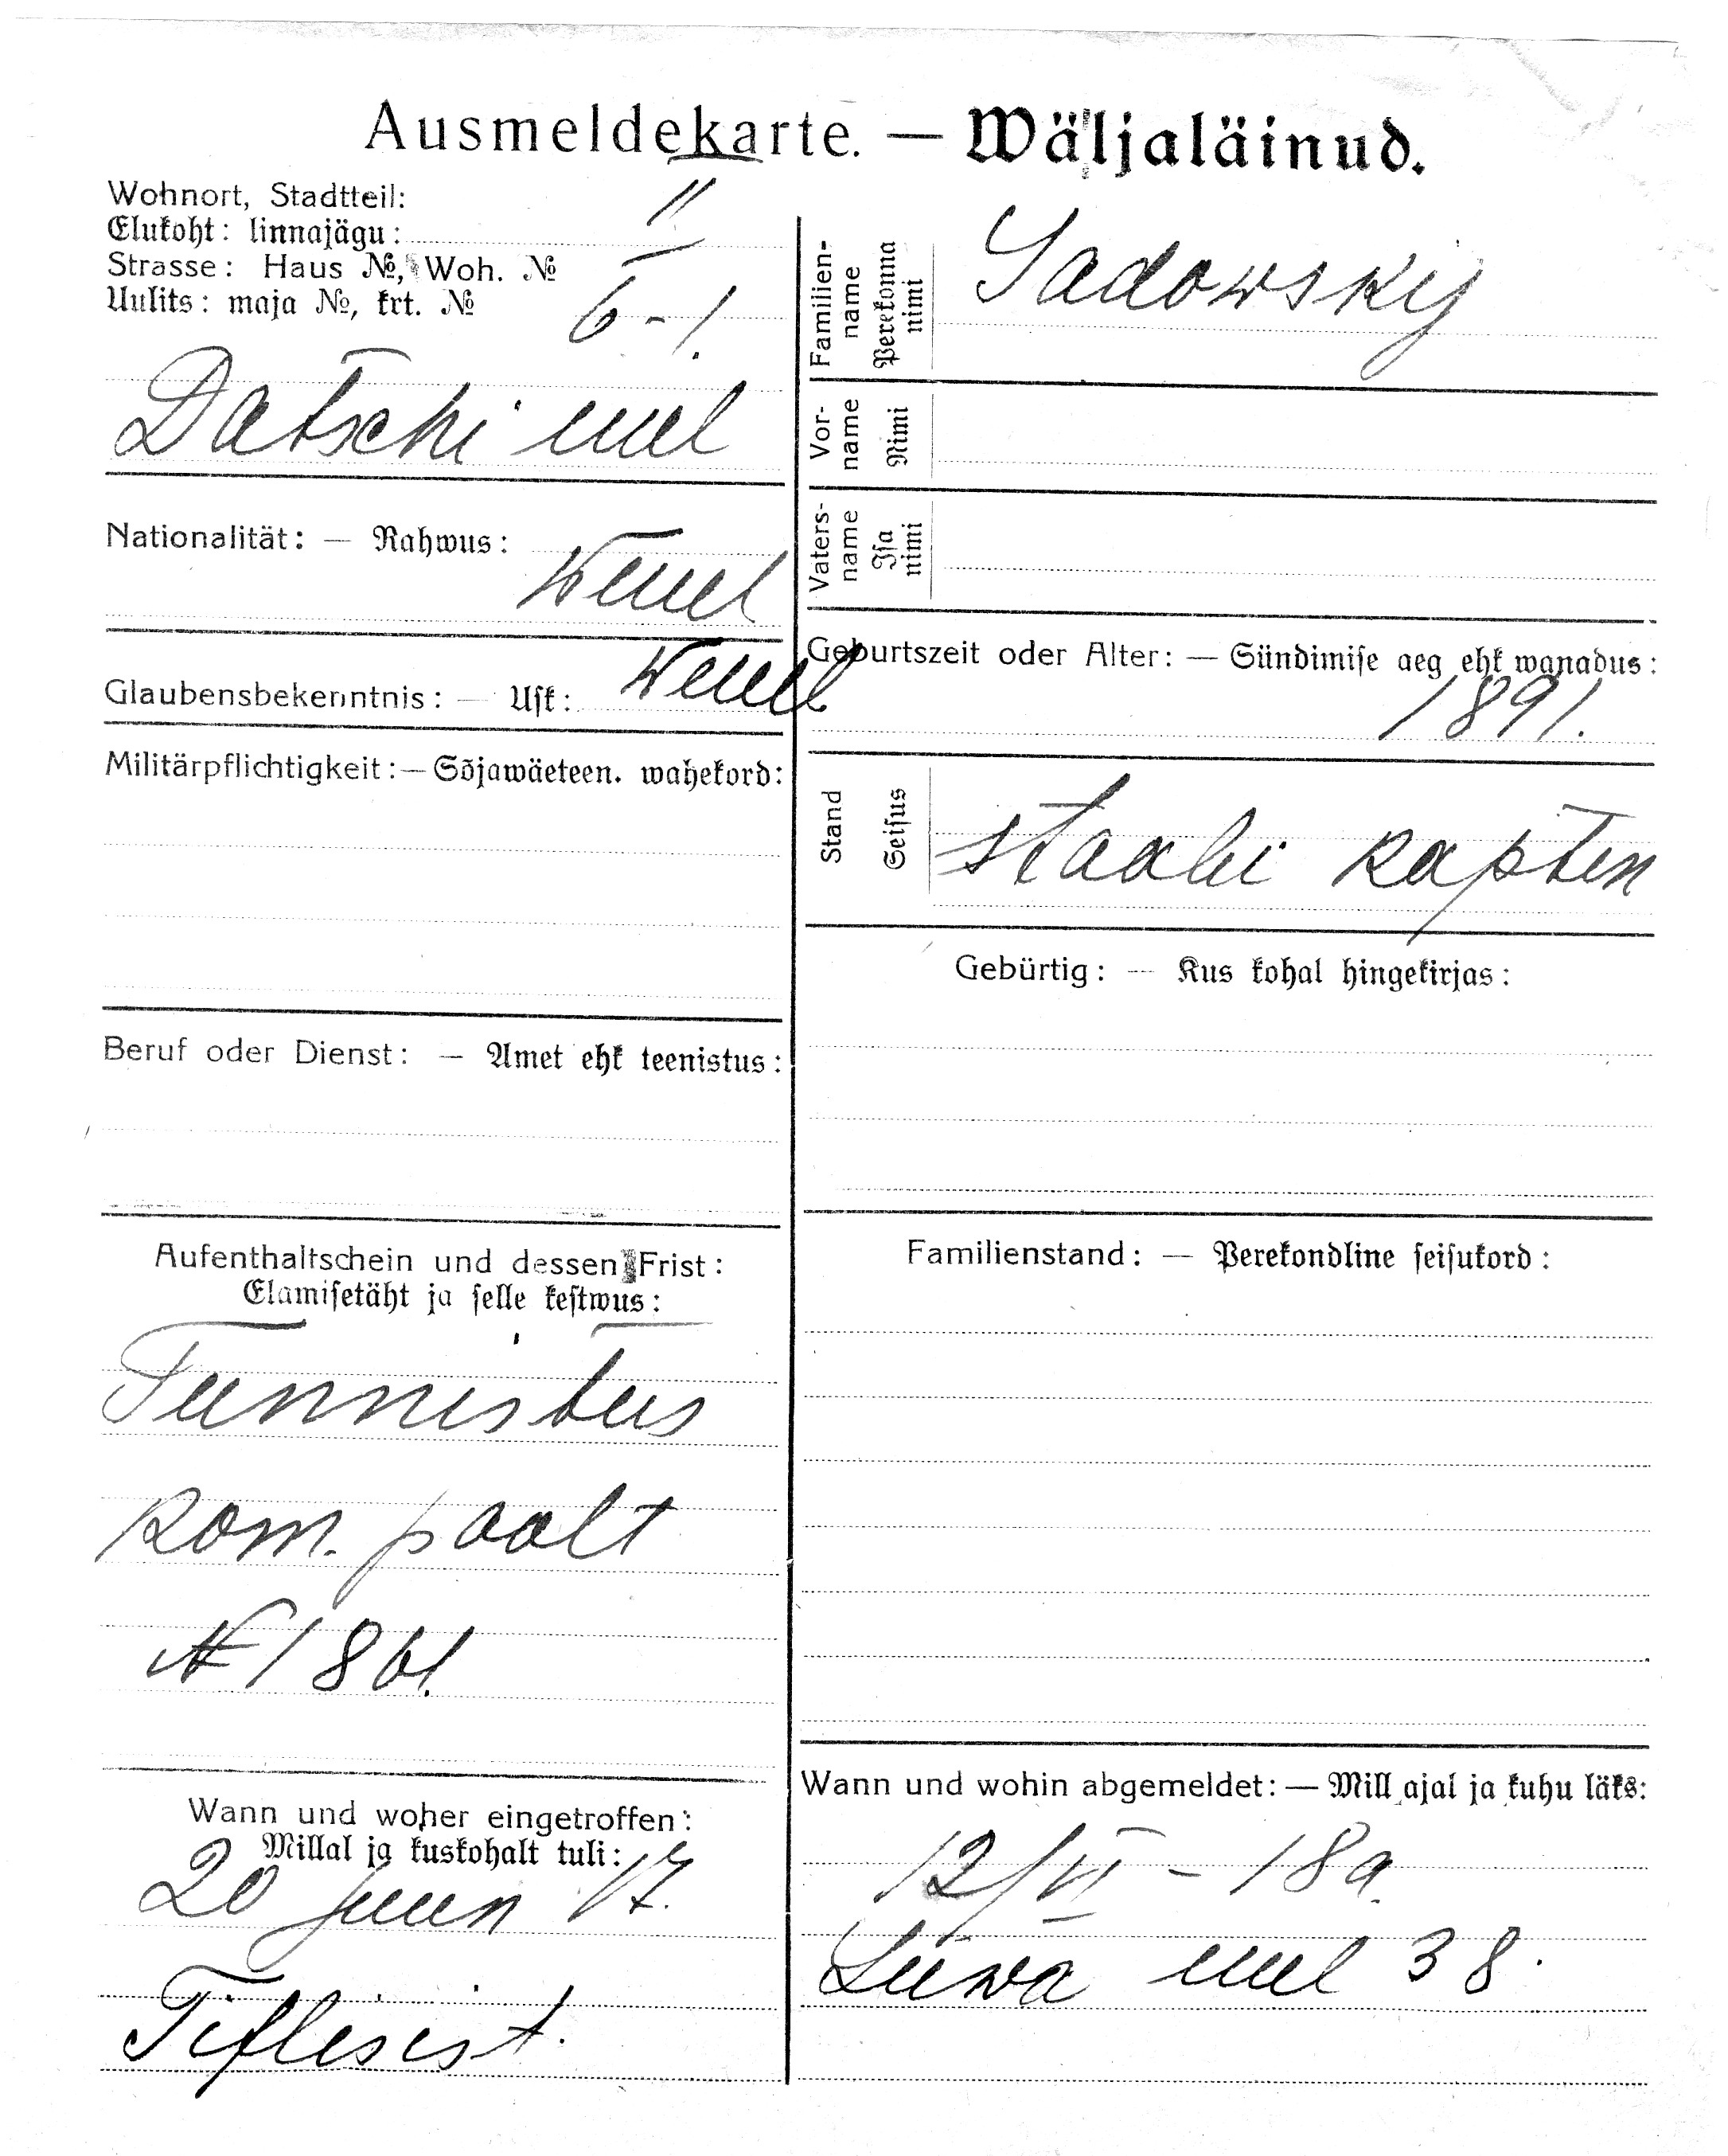 Ausmeldekarte. — Wäljaläinud.
Wohnort, Stadtteil:
Elukoht: linnajägu: II
Strasse: Haus №, Woh. №
Uulits: maja №, krt. № 6-1.
Datschi uul
Nationalität: — Rahwus:
Wenel
Glaubensbekenntnis: — Usk: Wenel
Militärpflichtigkeit: — Sõjawäeteen. wahekord:
Beruf oder Dienst: — Amet ehk teenistus:
Aufenthaltschein und dessen Frist:
Elamisetäht ja selle kestwus:
Tunnistus
Kom. poolt
№ 1861.
Wann und woher eingetroffen:
Millal ja kuskohalt tuli:
20 Juun 17.
Tiflisist.
Familien-name Perekonna nimi Sadowskij
Vor-name Nimi
Vaters-name Isa nimi
Geburtszeit oder Alter: — Sündimise aeg ehk wanadus:
1891.
Stand Seisus staabi kapten
Gebürtig: — Kus kohal hingekirjas:
Familienstand: — Perekondline seisukord:
Wann und wohin abgemeldet: — Mill ajal ja kuhu läks:
12/VI - 18 a.
Liiwa uul 38.